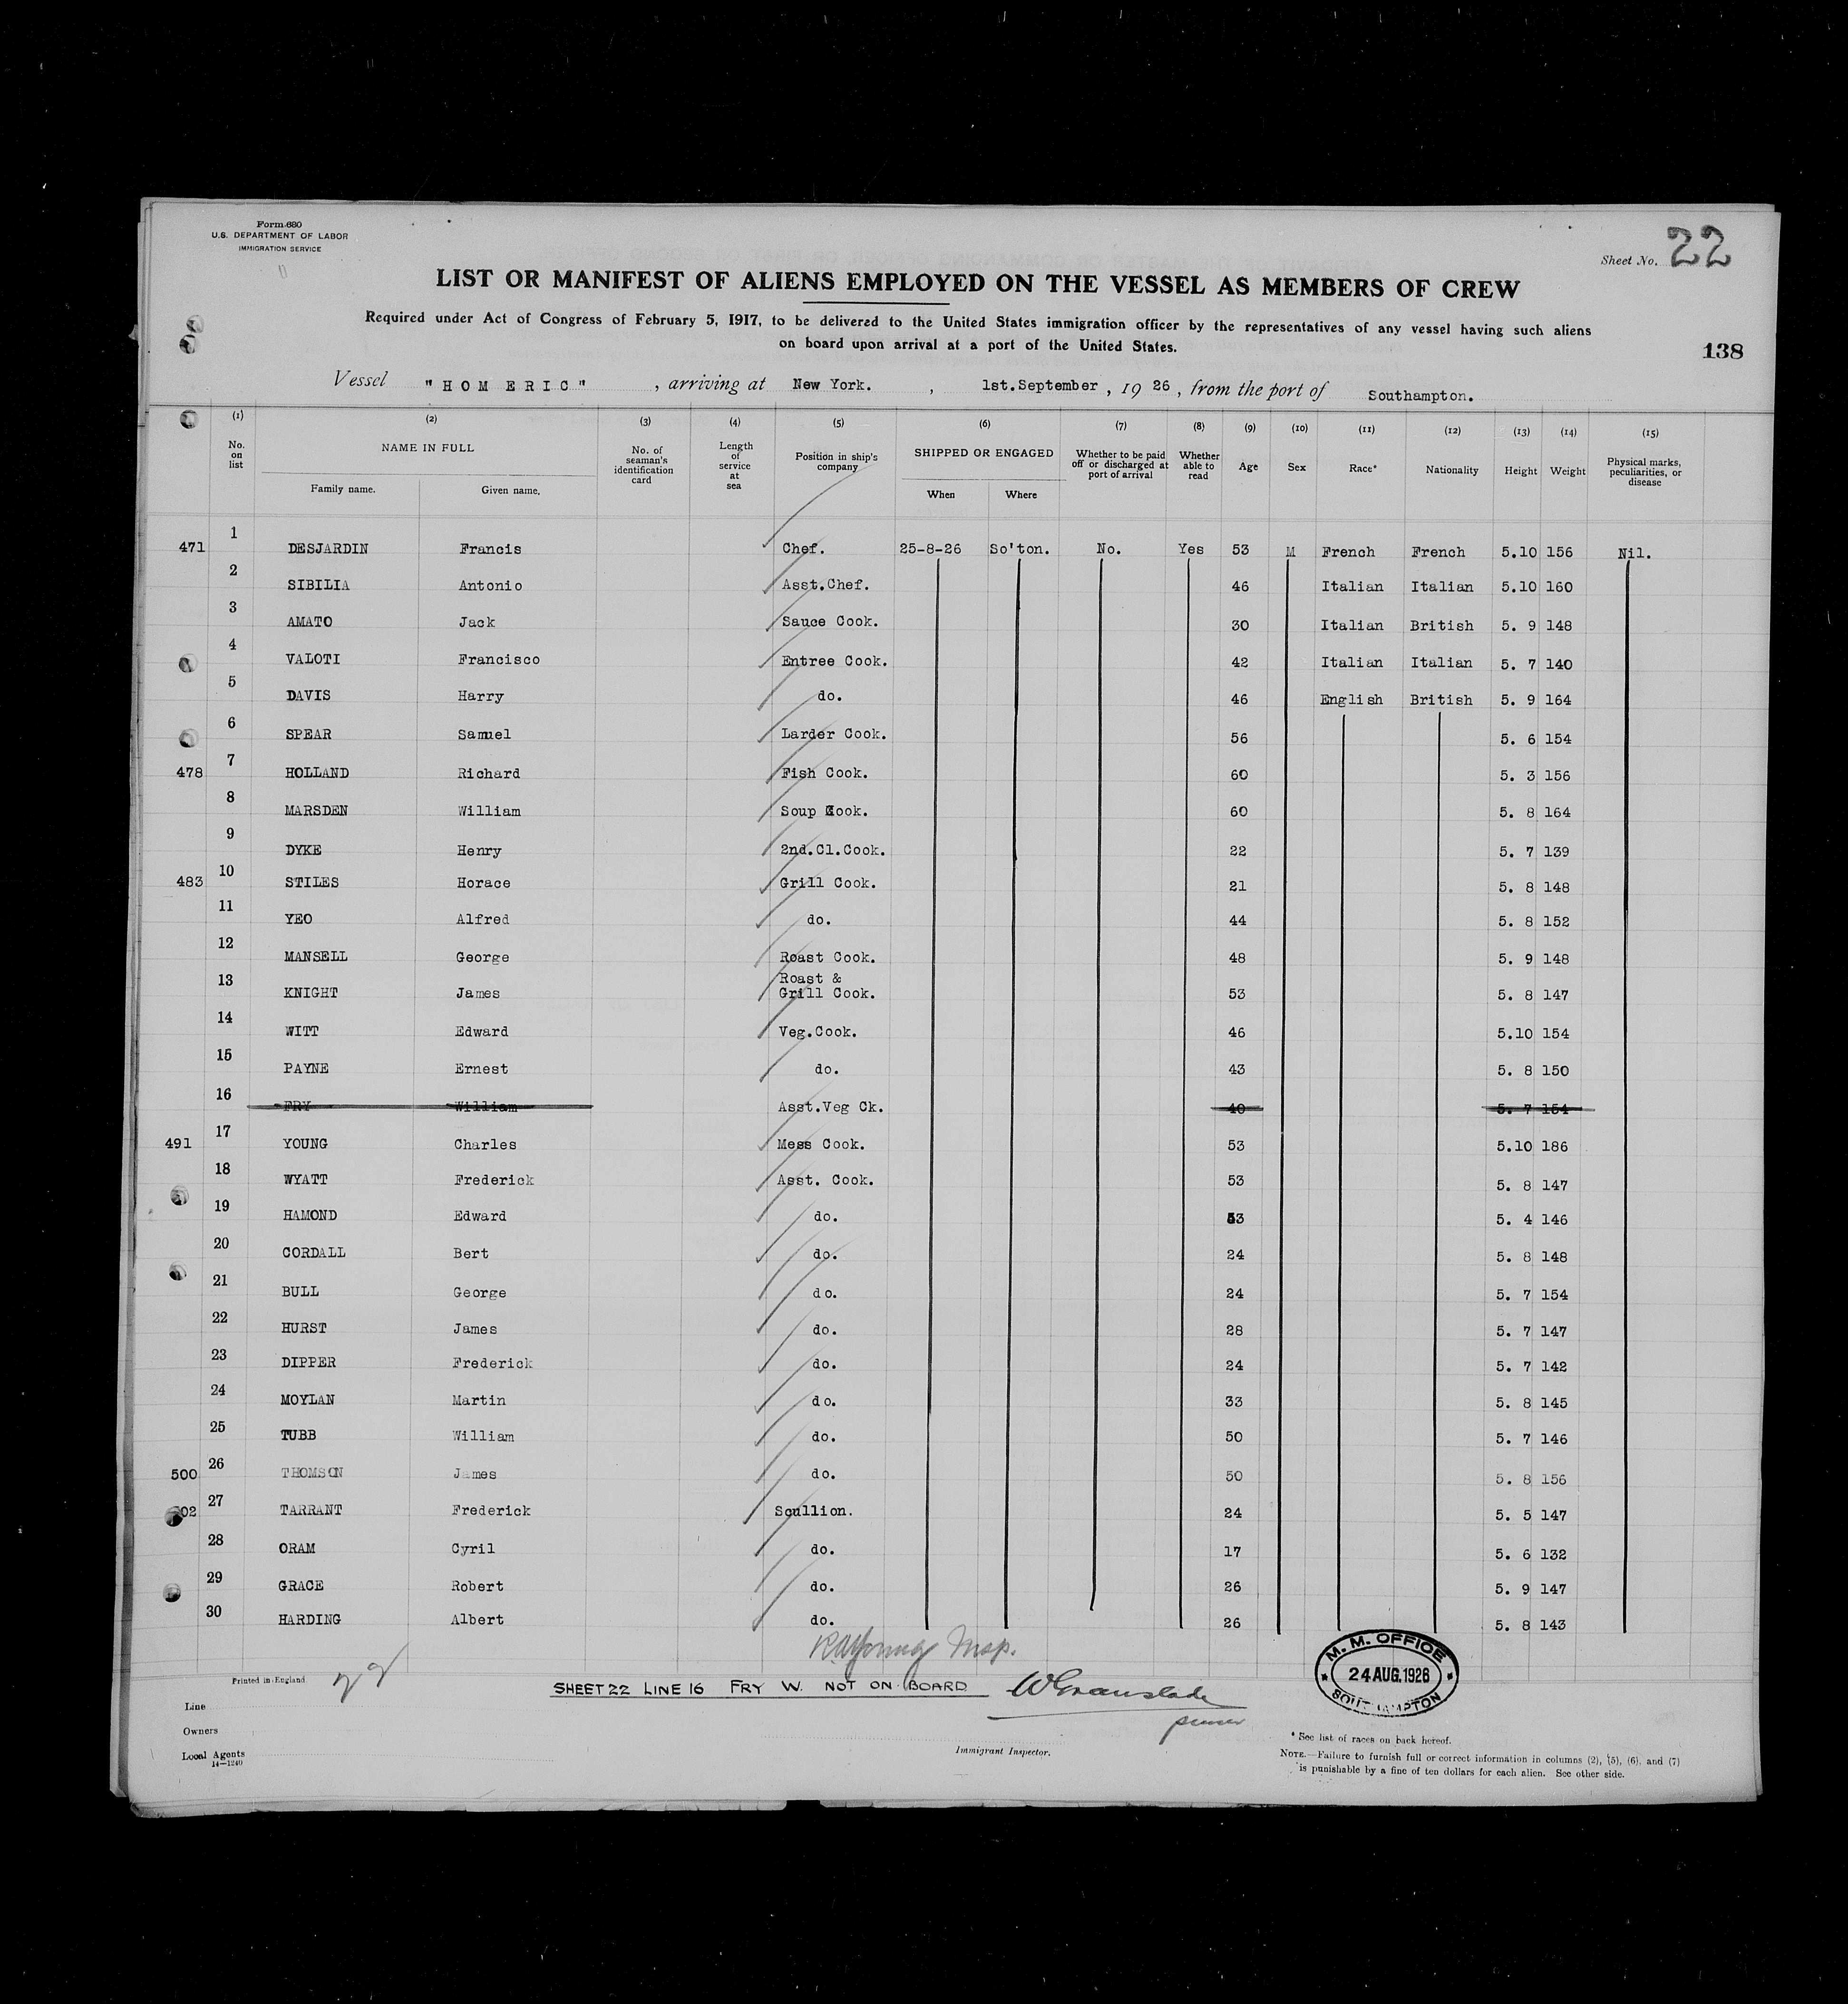 Form 680
U.S. DEPARTMENT OF LABOR
IMMIGRATION SERVICE
Sheet No. 22
LIST OR MANIFEST OF ALIENS EMPLOYED ON THE VESSEL AS MEMBERS OF CREW
Required under Act of Congress of February 5, 1917, to be delivered to the United States immigration officer by the representatives of any vessel having such aliens
on board upon arrival at a port of the United States.
138
Vessel "HOMERIC", arriving at New York., 1st.September, 1926, from the port of Southampton.
(1) (2) (3) (4) (5) (6) (7) (8) (9) (10) (11) (12) (13) (14) (15)
No. on list NAME IN FULL Family name. Given name. No. of seaman's identification card Length of service at sea Position in ship's company SHIPPED OR ENGAGED When Where Whether to be paid off or discharged at port of arrival Whether able to read Age Sex Race* Nationality Height Weight Physical marks, peculiarities, or disease
471 1 DESJARDIN Francis Chef. 25-8-26 So'ton. No. Yes 53 M French French 5.10 156 Nil.
2 SIBILIA Antonio Asst.Chef. 46 Italian Italian 5.10 160
3 AMATO Jack Sauce Cook. 30 Italian British 5. 9 148
4 VALOTI Francisco Entree Cook. 42 Italian Italian 5. 7 140
5 DAVIS Harry do. 46 English British 5. 9 164
6 SPEAR Samuel Larder Cook. 56 5. 6 154
478 7 HOLLAND Richard Fish Cook. 60 5. 3 156
8 MARSDEN William Soup Cook. 60 5. 8 164
9 DYKE Henry 2nd.Cl.Cook. 22 5. 7 139
483 10 STILES Horace Grill Cook. 21 5. 8 148
11 YEO Alfred do. 44 5. 8 152
12 MANSELL George Roast Cook. 48 5. 9 148
13 KNIGHT James Roast & Grill Cook. 53 5. 8 147
14 WITT Edward Veg.Cook. 46 5.10 154
15 PAYNE Ernest do. 43 5. 8 150
16 FRY William Asst.Veg Ck. 40 5. 7 154
491 17 YOUNG Charles Mess Cook. 53 5.10 186
18 WYATT Frederick Asst. Cook. 53 5. 8 147
19 HAMOND Edward do. 5. 4 146
20 CORDALL Bert do. 24 5. 8 148
21 BULL George do. 24 5. 7 154
22 HURST James do. 28 5. 7 147
23 DIPPER Frederick do. 24 5. 7 142
24 MOYLAN Martin do. 33 5. 8 145
25 TUBB William do. 50 5. 7 146
500 26 THOMSON James do. 50 5. 8 156
27 TARRANT Frederick Scullion. 24 5. 5 147
28 ORAM Cyril do. 17 5. 6 132
29 GRACE Robert do. 26 5. 9 147
30 HARDING Albert do. 26 5. 8 143
Young Insp.
M. M. OFFICE
24 AUG. 1926
SOUTHAMPTON
Printed in England
29
SHEET 22 LINE 16 FRY W. NOT ON BOARD
purser
Line
Owners
Local Agents
14—1240
Immigrant Inspector.
* See list of races on back hereof.
NOTE.—Failure to furnish full or correct information in columns (2), (5), (6), and (7)
is punishable by a fine of ten dollars for each alien. See other side.